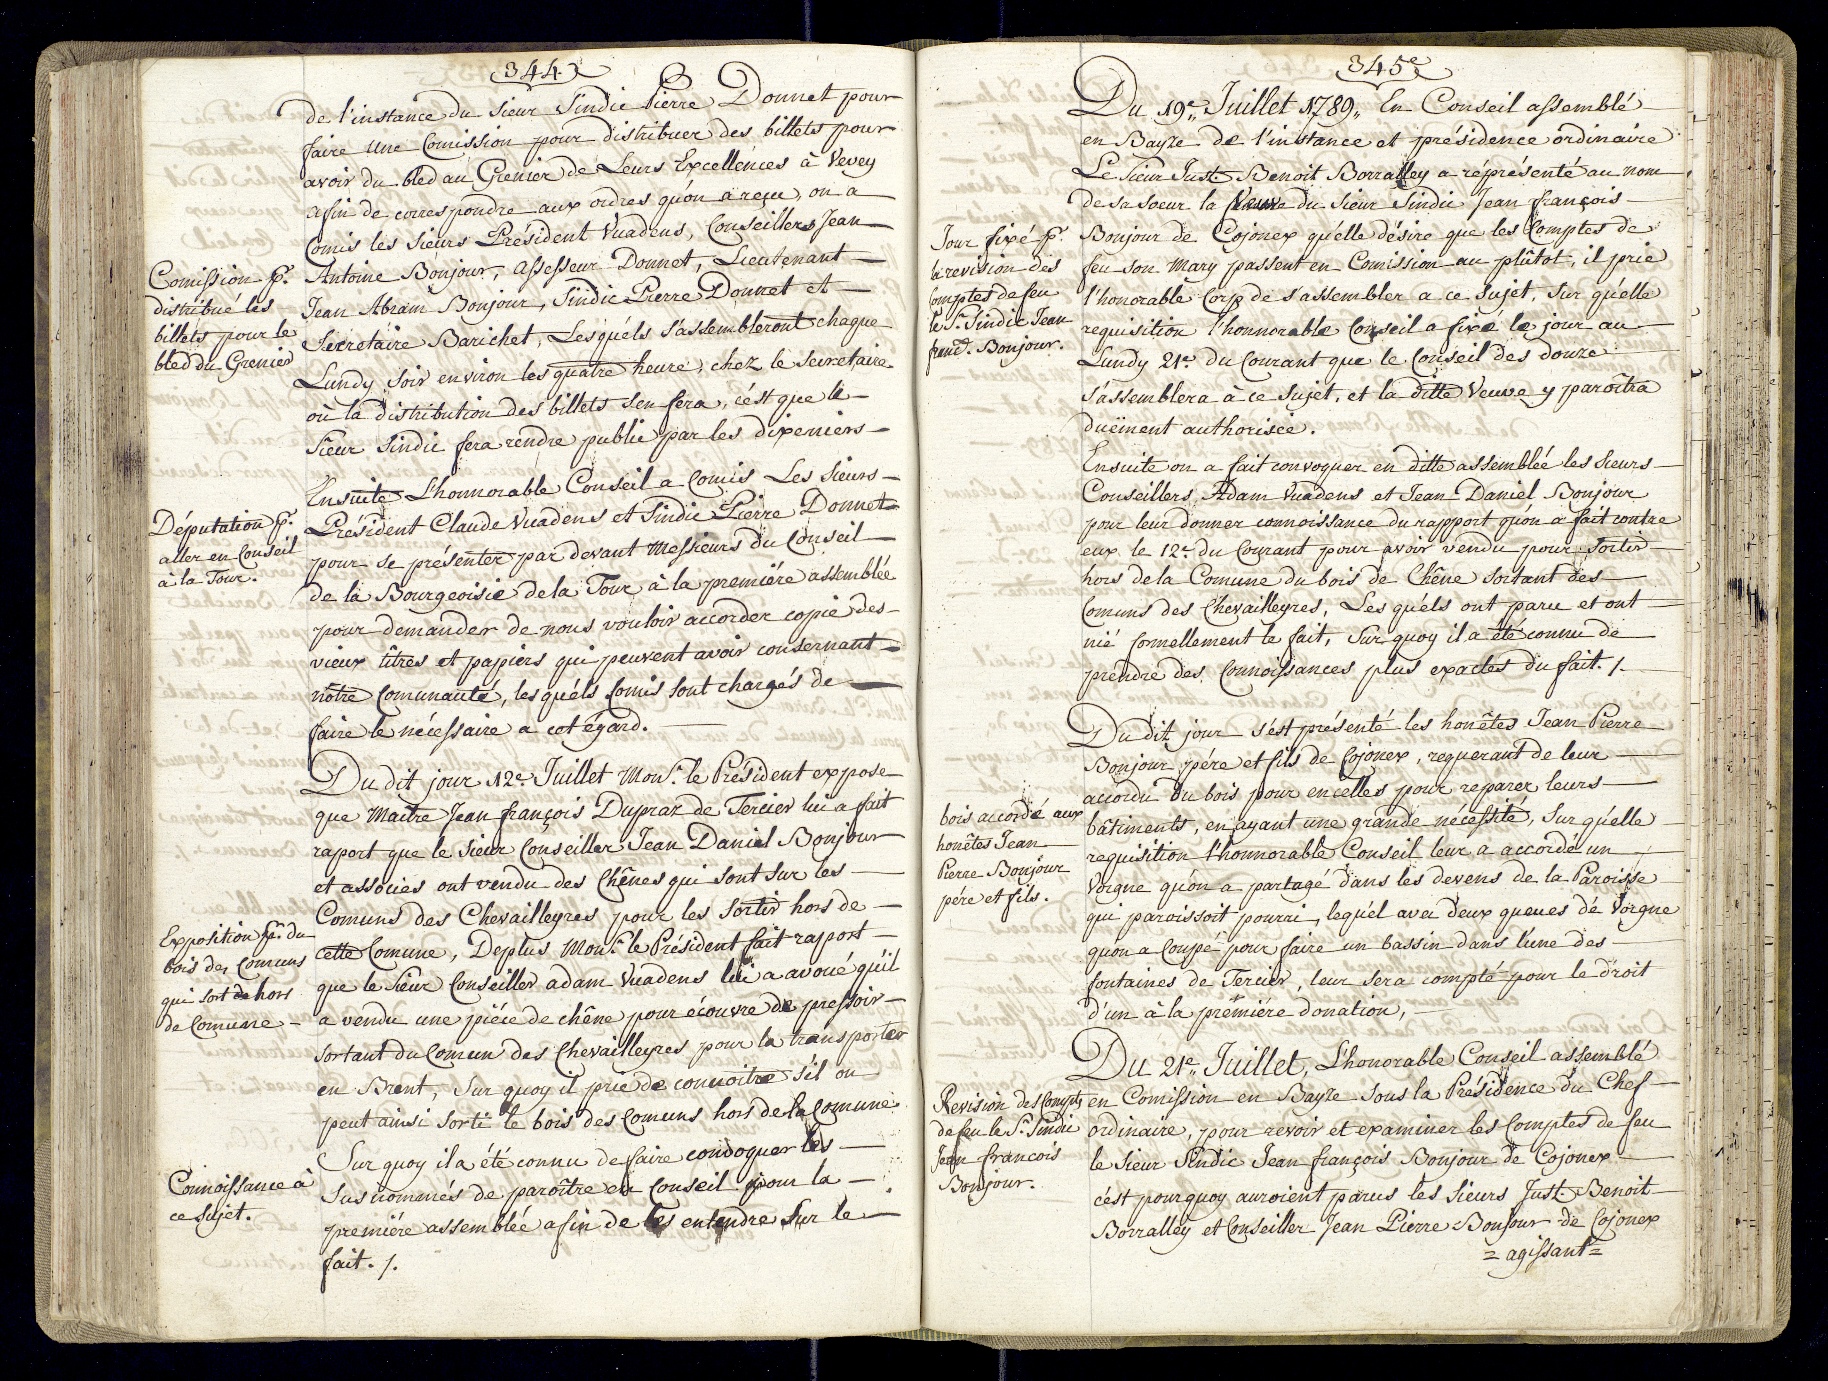 344
de l'instance du Sieur Sindic Pierre Donnet pour
faire une Comission pour distribuer des billets pour
avoir du bled au Grenier de Leurs Excellences à Vevey
afin de correspondre aux ordres qu'on a reçu, on a
Comis les Sieurs Président Vuadens, Conseillers Jean
Antoine Bonjour, Assesseur Donnet, Lieutenant
Jean Abram Bonjour, Sindic Pierre Donnet et
Secretaire Barichet, Lesquéls s'assembleront chaque
Lundy soir environ les quatre heure, chez le Secretaire
où la distribution des billets s'en fera, c'ést que le
Sieur Sindic fera rendre public par les dixeniers
Comission pr.
distribué les
billets pour le
bled du Grenier
Ensuite L'honnorable Conseil a Comis Les Sieurs
Président Claude Vuadens et Sindic Pierre Donnet
pour se présenter par devant Messieurs du Conseil
de la Bourgeoisie de la Tour à la premiére assemblée
pour demander de nous vouloir accorder copie des
vieux titres et papiers qui peuvent avoir consernant
nôtre Comunauté, lesquéls Comis sont chargés de
faire le nécéssaire a cet égard.
Députation pr.
aller en Conseil
à la Tour.
Du dit jour 12e. Juillet Monsr. le Président expose
que Maitre Jean françois Dupraz de Tercier lui a fait
raport que le Sieur Conseiller Jean Daniel Bonjour
et associés ont vendu des Chênes qui sont sur les
Comuns des Chevailleyres pour les sortir hors de
cette Comune, Deplus Monsr. le Président fait raport
que le Sieur Conseiller adam Vuadens lui a avoué qu'il
a vendu une piéce de chêne pour écouvre de pressoir
sortant du Comun des Chevailleyres pour la transporter
en Brent, Sur quoy il prie de connoitre s'il on
peut ainsi sorti le bois des Comuns hors de la Comune.
Exposition pr. du
bois des Comuns
qui sort de hors
de Comune
Sur quoy il a été connu de faire convoquer les
Sus nommés de paroître en Conseil pour la
premiére assemblée afin de les entendre sur le
fait. /.
Connoissance à
ce sujet.
345e
Du 19e. Juillet 1789. En Conseil assemblé
en Bayze de l'instance et présidence ordinaire
Le Sieur Just Benoit Borralley a réprésenté au nom
de sa soeur la Veuve du Sieur Sindic Jean françois
Bonjour de Cojonex qu'elle désire que les Comptes de
feu son Mary passent en Comission au plûtot, il prie
l'honorable Corps de s'assembler a ce sujet, Sur qu'elle
requisition l'honnorable Conseil a fixé le jour au
Lundy 21e. du Courant que le Conseil des douze
s'assemblera à ce sujet, et la ditte Veuve y paroîtra
duëment authorisée.
Jour fixé pr.
la revision des
Comptes de feu
le Sr. Sindic Jean
frans. Bonjour.
Ensuite on a fait convoquer en ditte assemblée les Sieurs
Conseillers Adam Vuadens et Jean Daniel Bonjour
pour leur donner connoissance du rapport qu'on a fait contre
eux le 12e. du Courant pour avoir vendu pour sortir
hors de la Comune du bois de Chêne sortant des
Comuns des Chevailleyres, Les quéls ont paru et ont
nié formellement le fait, Sur quoy il a été connu de
prendre des Connoissances plus exactes du fait. /.
Du dit jour s'ést présenté les honêtes Jean Pierre
Bonjour pére et fils de Cojonex, requerant de leur
accordu du bois pour encelles pour reparer leurs
bâtiments, en ayant une grande nécéssité, Sur qu'elle
requisition l'honnorable Conseil leur a accordé un
Voigne qu'on a partagé dans les devens de la Paroisse
qui paroissoit pourri, lequél avec deux queues de Voigne
qu'on a Coupé pour faire un bassin dans l'une des
fontaines de Tercier, leur sera compté pour le droit
d'un à la premiére donation,
bois accordé aux
honêtes Jean
Pierre Bonjour
pére et fils.
Du 21e. Juillet, L'honorable Conseil assemblé
en Comission en Bayze sous la Présidence du Chef
ordinaire, pour revoir et examiner les Comptes de feu
le Sieur Sindic Jean françois Bonjour de Cojonex
c'ést pourquoy auroient parus les Sieurs Just Benoit
Borralley et Conseiller Jean Pierre Bonjour de Cojonex
= agissant =
Revision des Compts
de feu le Sr. Sindic
Jean francois
Bonjour.